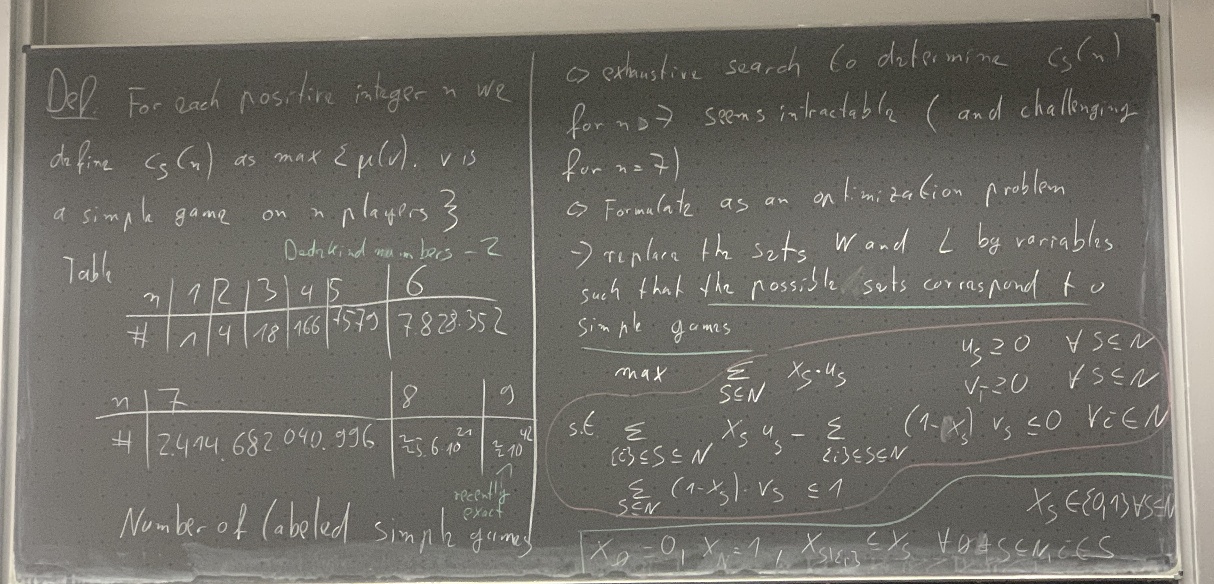 Def. For each positive integer n we
define cₛ(n) as max {μ(v): v is
a simple game on n players}
Dedekind numbers - 2
Table
n | 1 | 2 | 3 | 4 | 5 | 6
# | 1 | 4 | 18 | 166 | 7579 | 7.828.352
n | 7 | 8 | 9
# | 2.414.682.040.996 | ≈5.6·10²¹ | ≈10⁴²
recently
exact
Number of labeled simple games
↪ exhaustive search to determine cₛ(n)
for n → seems intractable (and challenging
for n=7)
↪ Formulate as an optimization problem
→ replace the sets W and L by variables
such that the possible sets correspond to
simple games
max Σ_{S⊆N} x_S·u_S
u_S ≥ 0 ∀ S⊆N
v_S ≥ 0 ∀ S⊆N
s.t. Σ_{{i}⊆S⊆N} x_S u_S - Σ_{{i}⊆S⊆N} (1-x_S) v_S ≤ 0 ∀i∈N
Σ_{S⊆N} (1-x_S)·v_S ≤ 1
x_S ∈ {0,1} ∀S⊆N
x_∅ = 0, x_N = 1, x_{S\{i}} ≤ x_S ∀∅≠S⊆N, i∈S